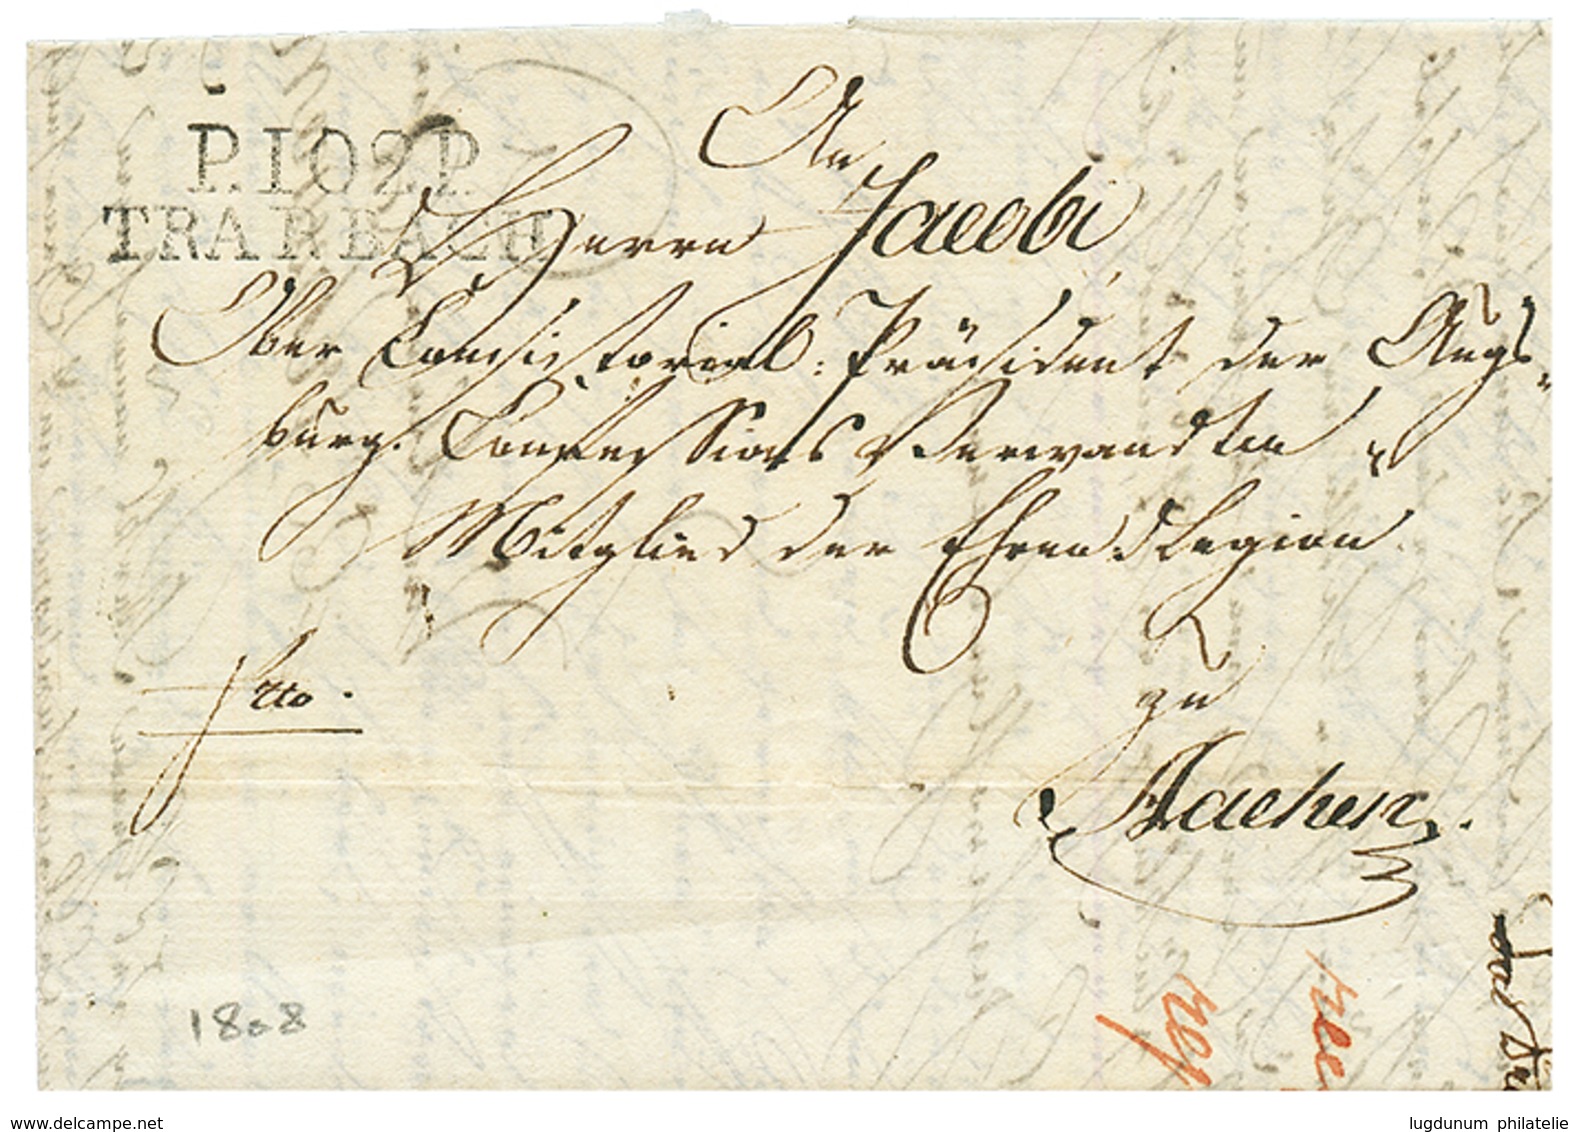 P.102.P.
TRARBACH
An
Herrn Jacobi
Ober Consistorial: Präsident der Augs-
burg. Confessions Verwandten
Mitglied der Ehren Legion
zu
Aachen.
fcco.
1808
delcampe.net
lugdunum philatelie